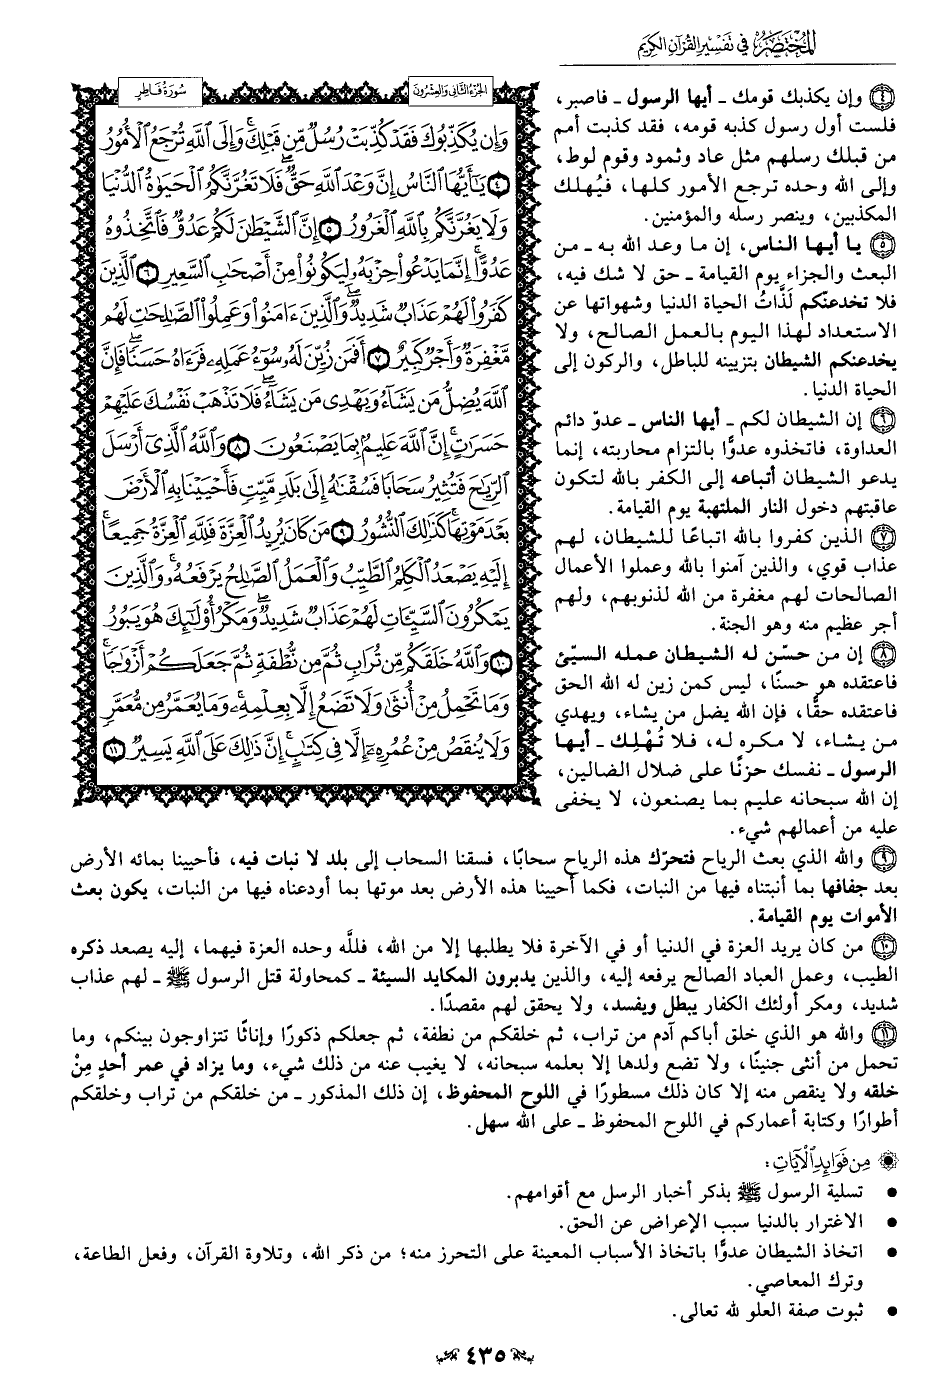 المختصر في تفسير القرآن الكريم
سورة فاطر
الجزء الثاني والعشرون
وَإِن يُكَذِّبُوكَ فَقَدْ كُذِّبَتْ رُسُلٌ مِّن قَبْلِكَۚ وَإِلَى ٱللَّهِ تُرْجَعُ ٱلْأُمُورُ
٤ يَٰٓأَيُّهَا ٱلنَّاسُ إِنَّ وَعْدَ ٱللَّهِ حَقٌّۖ فَلَا تَغُرَّنَّكُمُ ٱلْحَيَوٰةُ ٱلدُّنْيَا
وَلَا يَغُرَّنَّكُم بِٱللَّهِ ٱلْغَرُورُ ٥ إِنَّ ٱلشَّيْطَٰنَ لَكُمْ عَدُوٌّ فَٱتَّخِذُوهُ
عَدُوًّاۚ إِنَّمَا يَدْعُوا۟ حِزْبَهُۥ لِيَكُونُوا۟ مِنْ أَصْحَٰبِ ٱلسَّعِيرِ ٦ ٱلَّذِينَ
كَفَرُوا۟ لَهُمْ عَذَابٌ شَدِيدٌۖ وَٱلَّذِينَ ءَامَنُوا۟ وَعَمِلُوا۟ ٱلصَّٰلِحَٰتِ لَهُم
مَّغْفِرَةٌ وَأَجْرٌ كَبِيرٌ ٧ أَفَمَن زُيِّنَ لَهُۥ سُوٓءُ عَمَلِهِۦ فَرَءَاهُ حَسَنًاۖ فَإِنَّ
ٱللَّهَ يُضِلُّ مَن يَشَآءُ وَيَهْدِى مَن يَشَآءُۖ فَلَا تَذْهَبْ نَفْسُكَ عَلَيْهِمْ
حَسَرَٰتٍۚ إِنَّ ٱللَّهَ عَلِيمٌۢ بِمَا يَصْنَعُونَ ٨ وَٱللَّهُ ٱلَّذِىٓ أَرْسَلَ
ٱلرِّيَٰحَ فَتُثِيرُ سَحَابًا فَسُقْنَٰهُ إِلَىٰ بَلَدٍ مَّيِّتٍ فَأَحْيَيْنَا بِهِ ٱلْأَرْضَ
بَعْدَ مَوْتِهَاۚ كَذَٰلِكَ ٱلنُّشُورُ ٩ مَن كَانَ يُرِيدُ ٱلْعِزَّةَ فَلِلَّهِ ٱلْعِزَّةُ جَمِيعًاۚ
إِلَيْهِ يَصْعَدُ ٱلْكَلِمُ ٱلطَّيِّبُ وَٱلْعَمَلُ ٱلصَّٰلِحُ يَرْفَعُهُۥۚ وَٱلَّذِينَ
يَمْكُرُونَ ٱلسَّيِّـَٔاتِ لَهُمْ عَذَابٌ شَدِيدٌۖ وَمَكْرُ أُو۟لَٰٓئِكَ هُوَ يَبُورُ
١٠ وَٱللَّهُ خَلَقَكُم مِّن تُرَابٍ ثُمَّ مِن نُّطْفَةٍ ثُمَّ جَعَلَكُمْ أَزْوَٰجًاۚ
وَمَا تَحْمِلُ مِنْ أُنثَىٰ وَلَا تَضَعُ إِلَّا بِعِلْمِهِۦۚ وَمَا يُعَمَّرُ مِن مُّعَمَّرٍ
وَلَا يُنقَصُ مِنْ عُمُرِهِۦٓ إِلَّا فِى كِتَٰبٍۚ إِنَّ ذَٰلِكَ عَلَى ٱللَّهِ يَسِيرٌ ١١
٤ وإن يكذبك قومك ـ أيها الرسول ـ فاصبر،
فلست أول رسول كذبه قومه، فقد كذبت أمم
من قبلك رسلهم مثل عاد وثمود وقوم لوط،
وإلى الله وحده ترجع الأمور كلها، فيُهلك
المكذبين، وينصر رسله والمؤمنين.
٥ يا أيها الناس، إن ما وعد الله به ـ من
البعث والجزاء يوم القيامة ـ حق لا شك فيه،
فلا تخدعنّكم لَذَّاتُ الحياة الدنيا وشهواتها عن
الاستعداد لهذا اليوم بالعمل الصالح، ولا
يخدعنكم الشيطان بتزيينه للباطل، والركون إلى
الحياة الدنيا.
٦ إن الشيطان لكم ـ أيها الناس ـ عدوّ دائم
العداوة، فاتخذوه عدوًّا بالتزام محاربته، إنما
يدعو الشيطان أتباعه إلى الكفر بالله لتكون
عاقبتهم دخول النار الملتهبة يوم القيامة.
٧ الذين كفروا بالله اتباعًا للشيطان، لهم
عذاب قوي، والذين آمنوا بالله وعملوا الأعمال
الصالحات لهم مغفرة من الله لذنوبهم، ولهم
أجر عظيم منه وهو الجنة.
٨ إن من حسّن له الشيطان عمله السيّئ
فاعتقده هو حسنًا، ليس كمن زين له الله الحق
فاعتقده حقًّا، فإن الله يضل من يشاء، ويهدي
من يشاء، لا مكره له، فلا تُهْلِك ـ أيها
الرسول ـ نفسك حزنًا على ضلال الضالين،
إن الله سبحانه عليم بما يصنعون، لا يخفى
عليه من أعمالهم شيء.
٩ والله الذي بعث الرياح فتحرّك هذه الرياح سحابًا، فسقنا السحاب إلى بلد لا نبات فيه، فأحيينا بمائه الأرض
بعد جفافها بما أنبتناه فيها من النبات، فكما أحيينا هذه الأرض بعد موتها بما أودعناه فيها من النبات، يكون بعث
الأموات يوم القيامة.
١٠ من كان يريد العزة في الدنيا أو في الآخرة فلا يطلبها إلا من الله، فللَّه وحده العزة فيهما، إليه يصعد ذكره
الطيب، وعمل العباد الصالح يرفعه إليه، والذين يدبرون المكايد السيئة ـ كمحاولة قتل الرسول ﷺ ـ لهم عذاب
شديد، ومكر أولئك الكفار يبطل ويفسد، ولا يحقق لهم مقصدًا.
١١ والله هو الذي خلق أباكم آدم من تراب، ثم خلقكم من نطفة، ثم جعلكم ذكورًا وإناثًا تتزاوجون بينكم، وما
تحمل من أنثى جنينًا، ولا تضع ولدها إلا بعلمه سبحانه، لا يغيب عنه من ذلك شيء، وما يزاد في عمر أحدٍ مِنْ
خلقه ولا ينقص منه إلا كان ذلك مسطورًا في اللوح المحفوظ، إن ذلك المذكور ـ من خلقكم من تراب وخلقكم
أطوارًا وكتابة أعماركم في اللوح المحفوظ ـ على الله سهل.
من فوائد الآيات:
• تسلية الرسول ﷺ بذكر أخبار الرسل مع أقوامهم.
• الاغترار بالدنيا سبب الإعراض عن الحق.
• اتخاذ الشيطان عدوًّا باتخاذ الأسباب المعينة على التحرز منه؛ من ذكر الله، وتلاوة القرآن، وفعل الطاعة،
وترك المعاصي.
• ثبوت صفة العلو لله تعالى.
٤٣٥